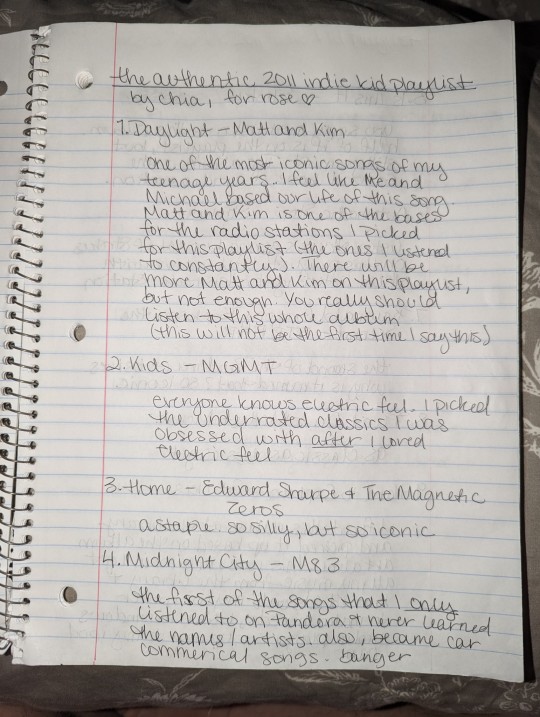 the authentic 2011 indie kid playlist
by chia, for rose ♡
1. Daylight – Matt and Kim
one of the most iconic songs of my
teenage years. I feel like me and
Michael based our life of this song.
Matt and Kim is one of the bases
for the radio stations I picked
for this playlist (the ones I listened
to constantly). There will be
more Matt and Kim on this playlist,
but not enough. You really should
listen to this whole album
(this will not be the first time I say this)
2. Kids – MGMT
everyone knows electric feel. I picked
the underrated classics I was
obsessed with after I loved
electric feel
3. Home – Edward Sharpe & The Magnetic
Zeros
a staple so silly, but so iconic
4. Midnight City – M83
the first of the songs that I only
listened to on Pandora & never learned
the names/artists. also, became car
commerical songs. banger